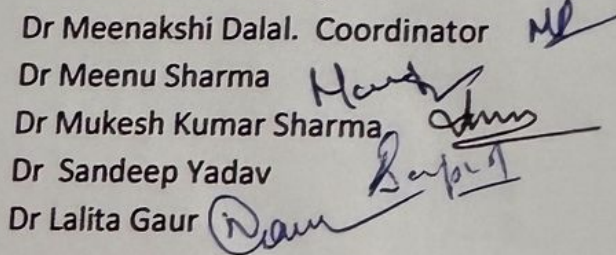 Dr Meenakshi Dalal. Coordinator
Dr Meenu Sharma
Dr Mukesh Kumar Sharma
Dr Sandeep Yadav
Dr Lalita Gaur